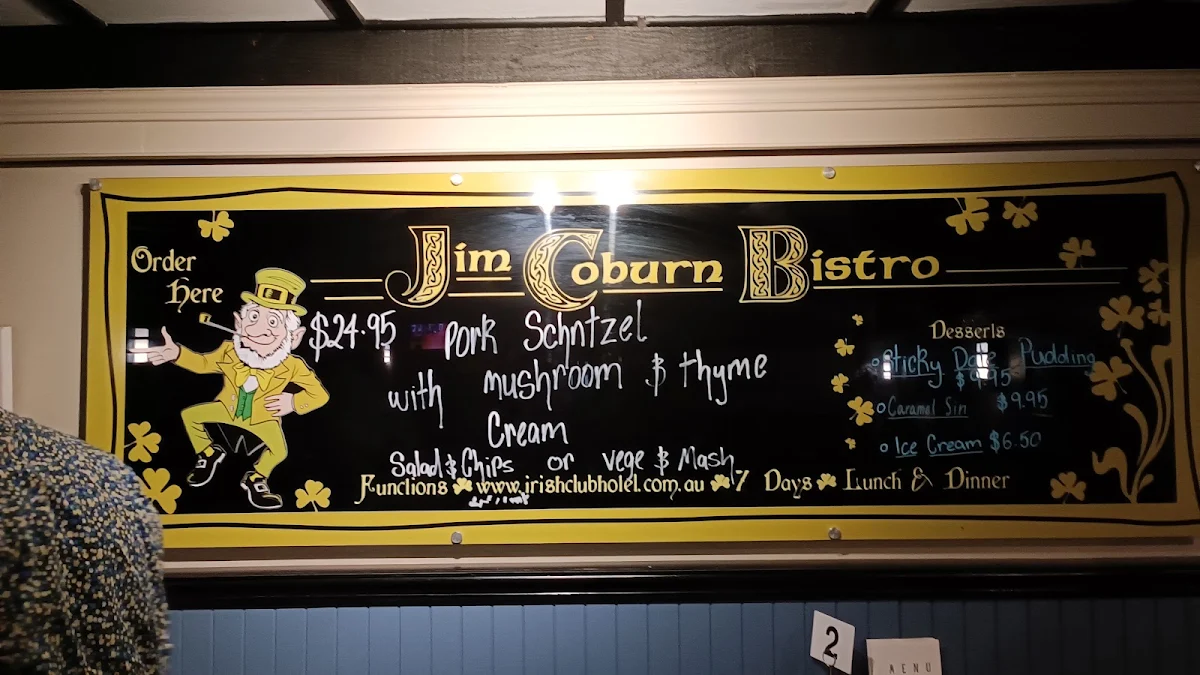 Jim Coburn Bistro
Order
Here
$24.95 Pork Schntzel
with mushroom & thyme
Cream
Salad & Chips or vege & Mash
Desserts
Sticky Date Pudding
$9.95
Caramel Sin $9.95
Ice Cream $6.50
Functions www.irishclubhotel.com.au 7 Days Lunch & Dinner
2
MENU